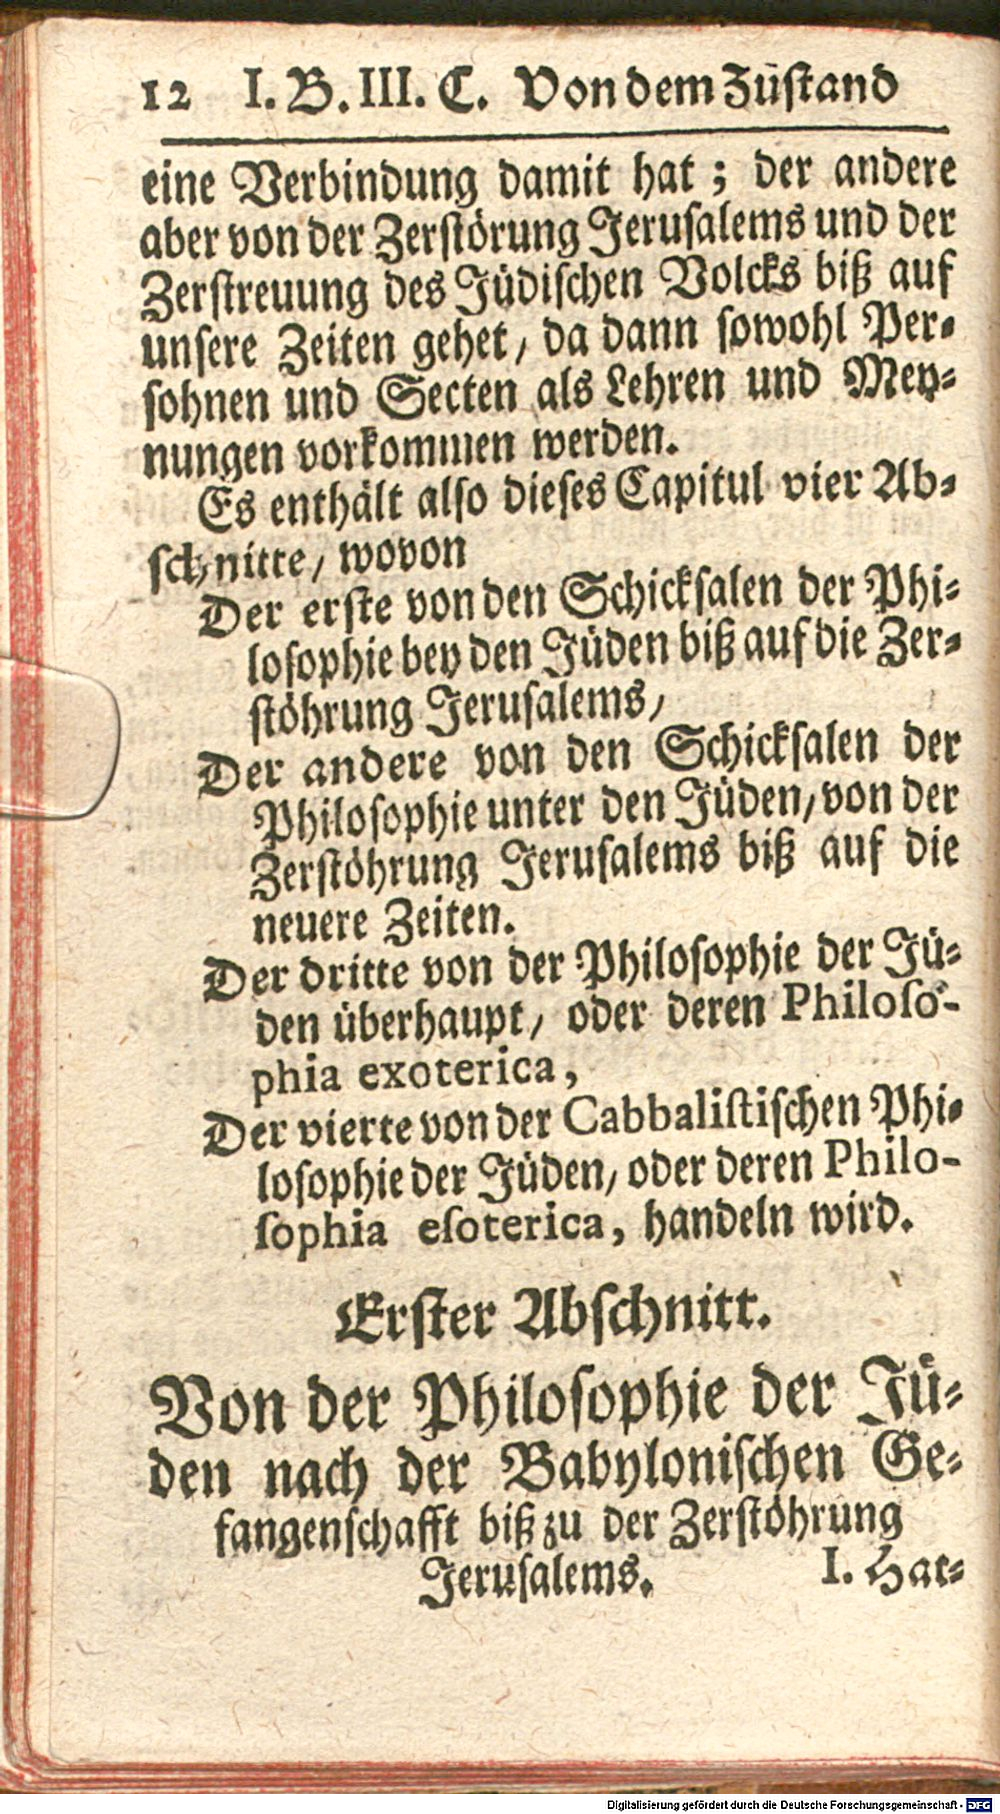 12 I. B. III. C. Von dem Zuſtand
eine Verbindung damit hat; der andere
aber von der Zerſtörung Jeruſalems und der
Zerſtreuung des Jüdiſchen Volcks biß auf
unſere Zeiten gehet, da dann ſowohl Per-
ſohnen und Secten als Lehren und Mey-
nungen vorkommen werden.
Es enthält alſo dieſes Capitul vier Ab-
ſchnitte, wovon
Der erſte von den Schickſalen der Phi-
loſophie bey den Jüden biß auf die Zer-
ſtöhrung Jeruſalems,
Der andere von den Schickſalen der
Philoſophie unter den Jüden, von der
Zerſtöhrung Jeruſalems biß auf die
neuere Zeiten.
Der dritte von der Philoſophie der Jü-
den überhaupt, oder deren Philoſo-
phia exoterica,
Der vierte von der Cabbaliſtiſchen Phi-
loſophie der Jüden, oder deren Philo-
ſophia eſoterica, handeln wird.
Erſter Abſchnitt.
Von der Philoſophie der Jü-
den nach der Babyloniſchen Ge-
fangenſchafft biß zu der Zerſtöhrung
Jeruſalems.
I. Hat-
Digitalisierung gefördert durch die Deutsche Forschungsgemeinschaft - DFG